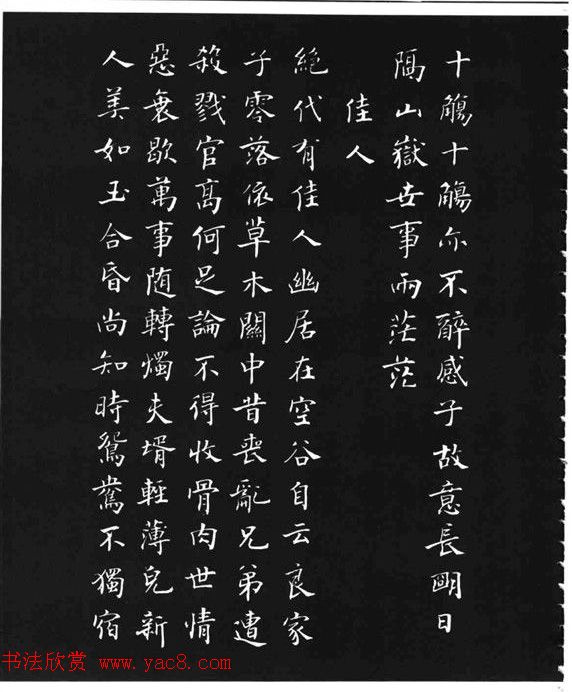 十觴十觴亦不醉感子故意長明日
隔山嶽世事兩茫茫
佳人
絕代有佳人幽居在空谷自云良家
子零落依草木關中昔喪亂兄弟遭
殺戮官高何足論不得收骨肉世情
惡衰歇萬事隨轉燭夫壻輕薄兒新
人美如玉合昏尚知時鴛鴦不獨宿
书法欣赏 www.yac8.com